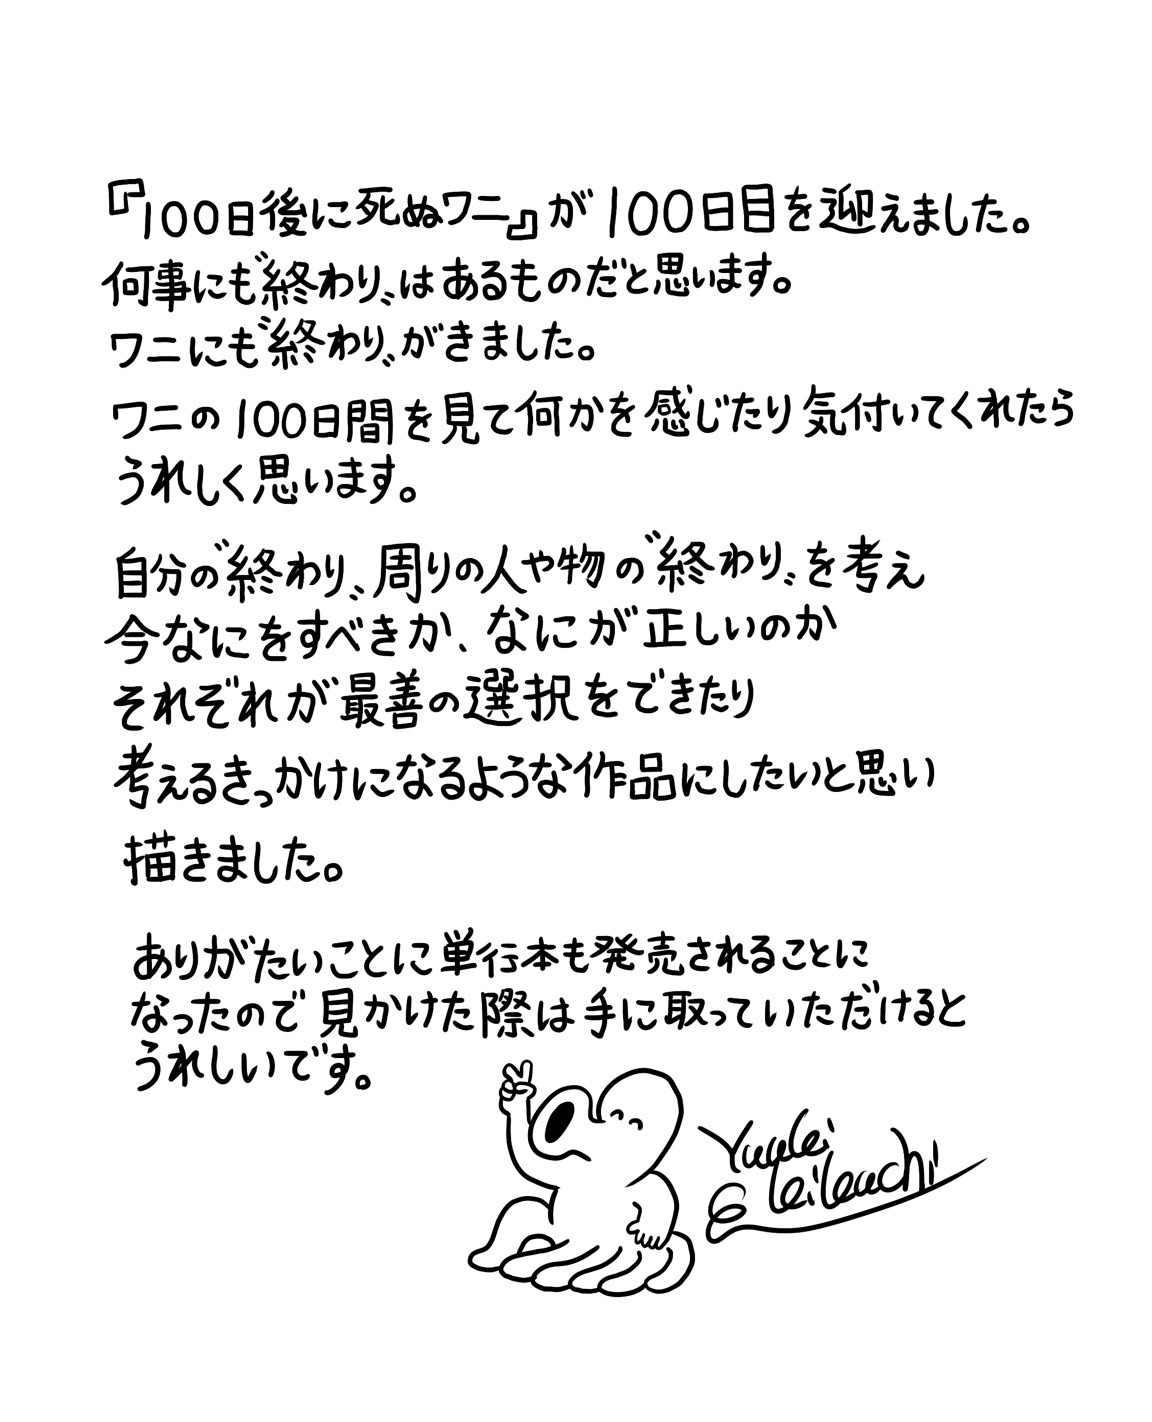 『100日後に死ぬワニ』が100日目を迎えました。
何事にも〝終わり〟はあるものだと思います。
ワニにも〝終わり〟がきました。
ワニの100日間を見て何かを感じたり気付いてくれたら
うれしく思います。
自分の〝終わり〟周りの人や物の〝終わり〟を考え
今なにをすべきか、なにが正しいのか
それぞれが最善の選択をできたり
考えるきっかけになるような作品にしたいと思い
描きました。
ありがたいことに単行本も発売されることに
なったので見かけた際は手に取っていただけると
うれしいです。